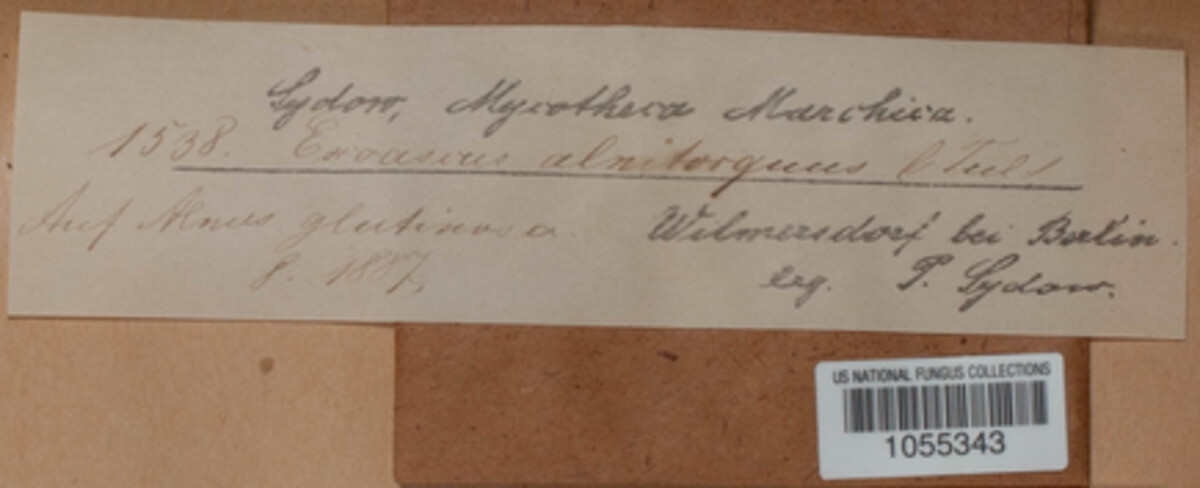 Sydow, Mycotheca Marchica.
1538. Exoascus alnitorquus (Tul.)
Auf Alnus glutinosa.
Wilmersdorf bei Berlin.
8. 1887.
leg. P. Sydow.
US NATIONAL FUNGUS COLLECTIONS
1055343